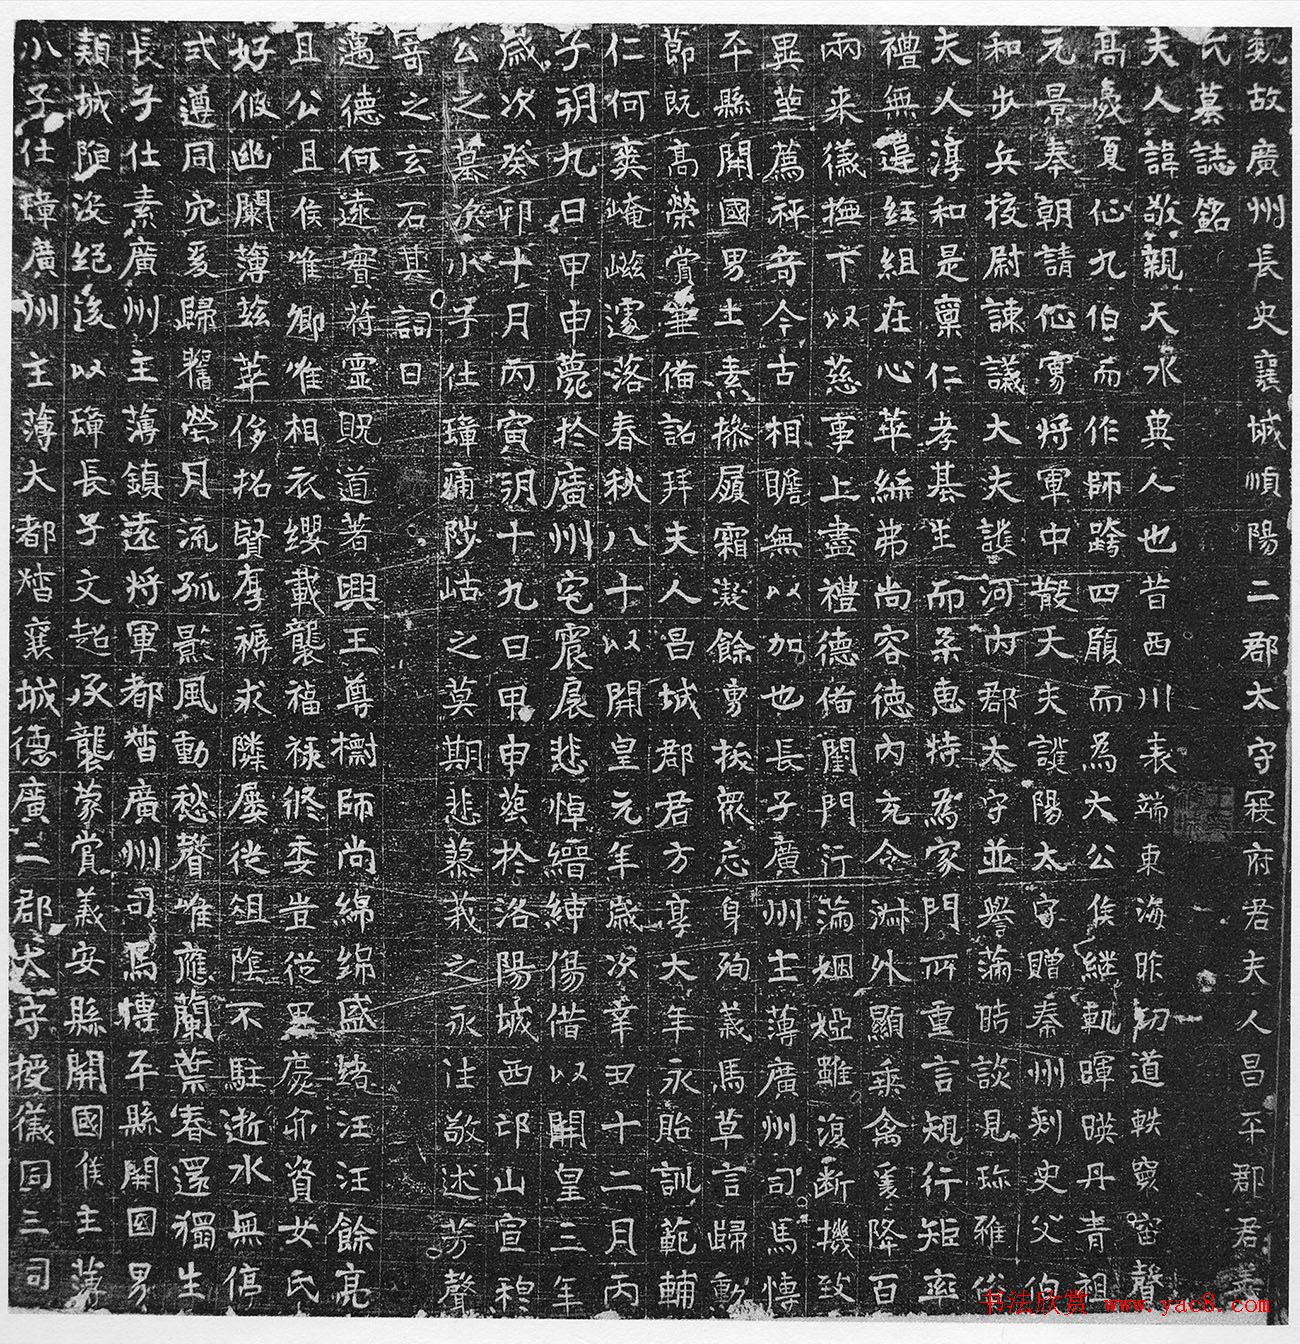 魏故廣州長史襄城順陽二郡太守寇府君夫人昌平郡君姜
氏墓誌銘
夫人諱敬親天水兾人也昔西川表端東海昨初道軼窮宙聲
高歲夏佐九伯而作師跨四願而為大公侯継軌暉暎丹青祖
元景奉朝請佐寧将軍中散大夫譙陽太守贈秦州刾史父伯
和步兵挍尉諫議大夫譙河內郡太守並譽滿時談見珎雅俗
夫人淳和是稟仁孝基生而柔惠特為家門所重言規行矩率
禮無違紝組在心華絲弗尚容德內充令淋外顯乘禽爰降百
兩来儀撫下以慈事上盡禮德俻閨門行滿姻婭雖復断機致
異塟薦秤奇今古相瞻無以加也長子廣州主薄廣州司馬愽
平縣開國男士素摻履霜凝餘勇挍衆忘身殉義馬草言歸勳
莭既高榮賞葟俻詔拜夫人昌城郡君方享大年永貽訓範輔
仁何爽崦嵫遽落春秋八十以開皇元年歲次辛丑十二月丙
子朔九日甲申薨扵廣州宅宸扆悲悼縉紳傷借以開皇三年
歲次癸卯十月丙寅朔十九日甲申葬扵洛陽城西邙山宣穆
公之墓次小子仕璋痛陟岵之莫期悲蓼莪之永往敬述芳聲
寄之玄石其詞曰
邁德何遠賓蒋靈貺道著興王尊櫥師尚綿綿盛緒汪汪餘亮
且公且侯唯卿唯相衣纓載襲福祿終委豈從異慶亦資女氏
好佊幽闌薄茲華侈招賢厚褥求隣屢徙爼隂不駐逝水無停
式遵同穴爰歸舊塋月流孤影風動愁聲唯應蘭葉春還獨生
長子仕素廣州主薄鎮遠将軍都督廣州司馬愽平縣開國男
頹城陷沒絕後以璋長子文起承襲蒙賞義安縣開國侯主薄
小子仕璋廣州主薄大都督襄城德廣二郡太守授儀同三司
书法欣赏 www.yac8.com